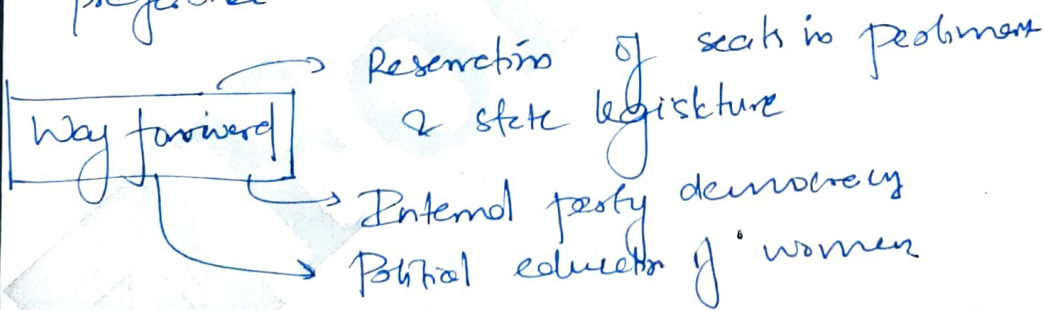 Reservation of seats in parliament
& state legislature
Way forward
Internal party democracy
Political education of women